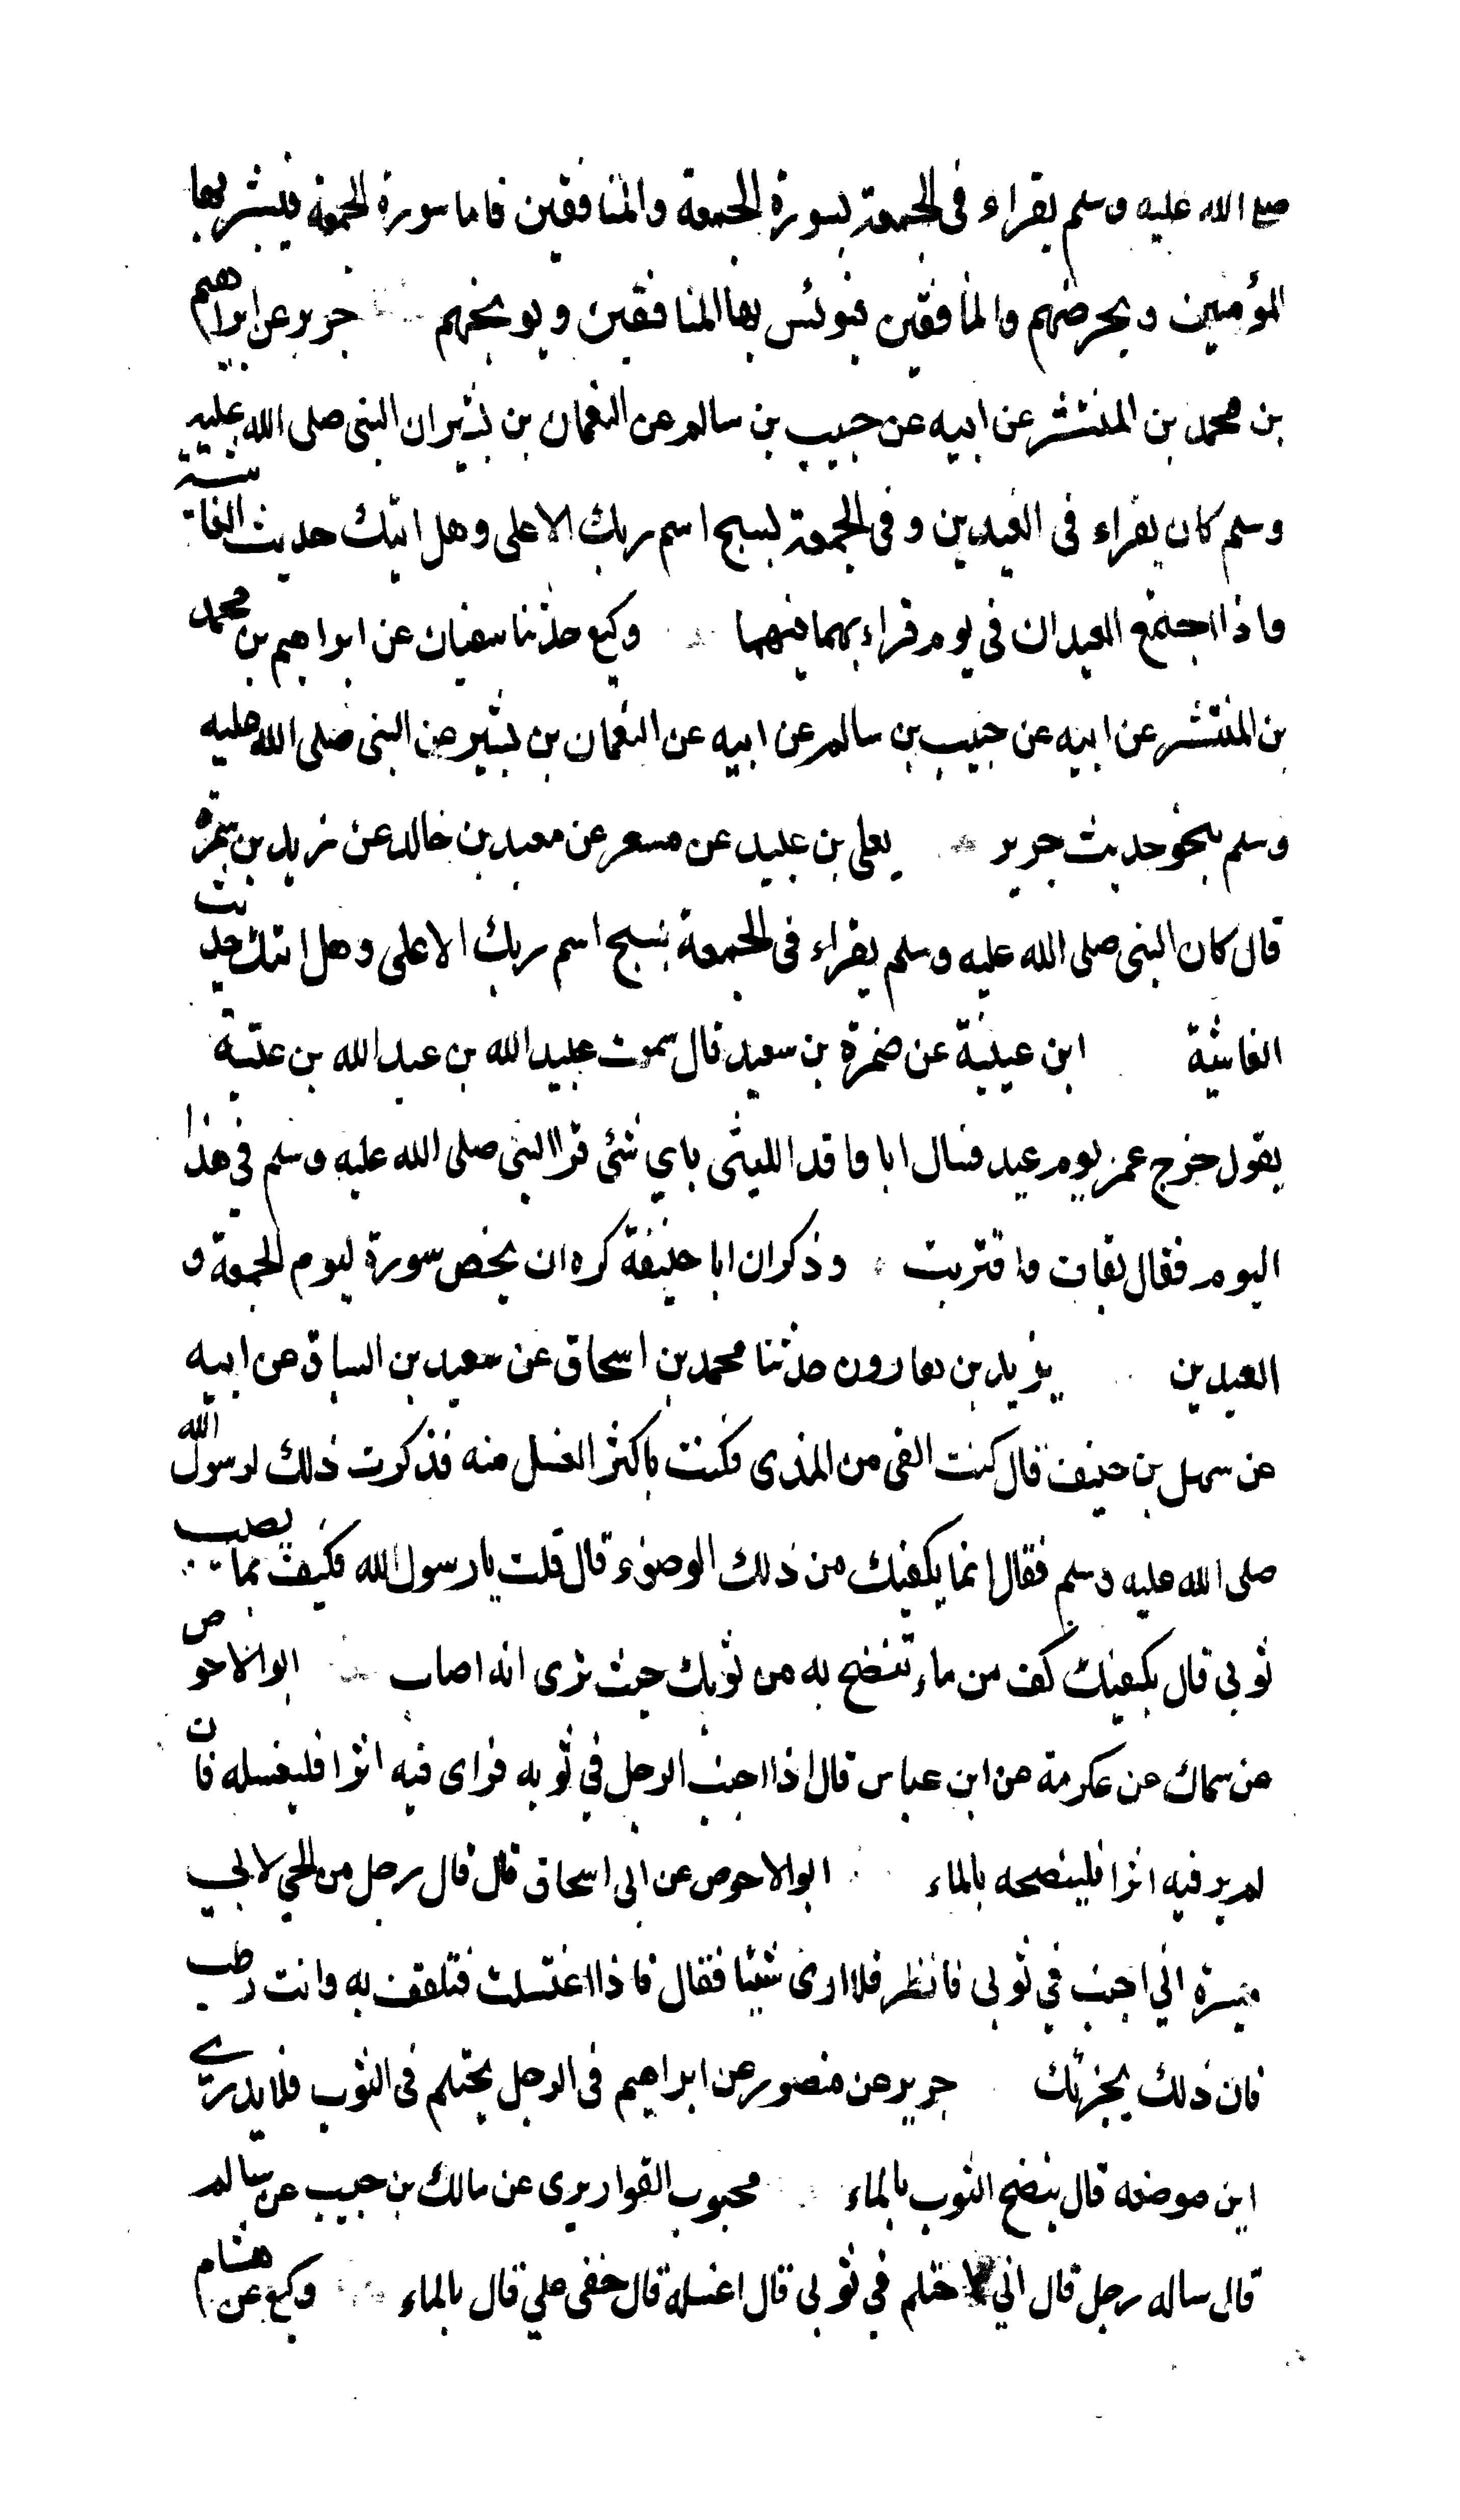 صلى الله عليه وسلم يقراء في الجمعة بسورة الجمعة والمنافقين فاما سورة الجمعة فيبشر بها
المؤمنين ويحرضهم والمنافقين فيوئس بها المنافقين ويوبخهم جرير عن ابراهيم
بن محمد بن المنتشر عن ابيه عن حبيب بن سالم عن النعمان بن بشير ان النبي صلى الله عليه
وسلم كان يقراء في العيدين وفي الجمعة بسبح اسم ربك الاعلى وهل اتيك حديث الغاشية
واذا اجتمع العيدان في يوم قراء بهما فيهما وكيع حدثنا سفيان عن ابراهيم بن محمد
بن المنتشر عن ابيه عن حبيب بن سالم عن ابيه عن النعمان بن بشير عن النبي صلى الله عليه
وسلم بنحو حديث جرير يعلى بن عبيد عن مسعر عن معبد بن خالد عن زيد بن سمرة
قال كان النبي صلى الله عليه وسلم يقراء في الجمعة بسبح اسم ربك الاعلى وهل اتيك حديث
الغاشية ابن عيينة عن ضمرة بن سعيد قال سمعت عبيد الله بن عبد الله بن عتبة
يقول خرج عمر يوم عيد فسال ابا واقد الليثي باي شئ قرا النبي صلى الله عليه وسلم في هذا
اليوم فقال بقاف واقتربت وذكر ان ابا حنيفة كره ان يخص سورة ليوم الجمعة و
العيدين يزيد بن هارون حدثنا محمد بن اسحاق عن سعيد بن السباق عن ابيه
عن سهل بن حنيف قال كنت القى من المذى فكنت باكثر الغسل منه فذكرت ذلك لرسول الله
صلى الله عليه وسلم فقال انما يكفيك من ذلك الوضوء قال قلت يا رسول الله فكيف بما يصيب
ثوبي قال يكفيك كف من ماء تنضح به من ثوبك حيث ترى انه اصاب ابو الاحوص
عن سماك عن عكرمة عن ابن عباس قال اذا اجنب الرجل في ثوبه فراى فيه اثرا فليغسله فان
لم ير فيه اثرا فلينضحه بالماء ابو الاحوص عن ابى اسحاق قال قال رجل من الحي لابي
ميسرة اني اجنب في ثوبى فانظر فلا ارى شيئا فقال فاذا اغتسلت فتلفف به وانت رطب
فان ذلك يجزئك جرير عن منصور عن ابراهيم فى الرجل يحتلم فى الثوب فلا يدري
اين موضعه قال ينضح الثوب بالماء محبوب القواريرى عن مالك بن حبيب عن سالم
قال ساله رجل قال اني احتلم في ثوبى قال اغسله قال خفى علي قال بالماء وكيع عن هشام